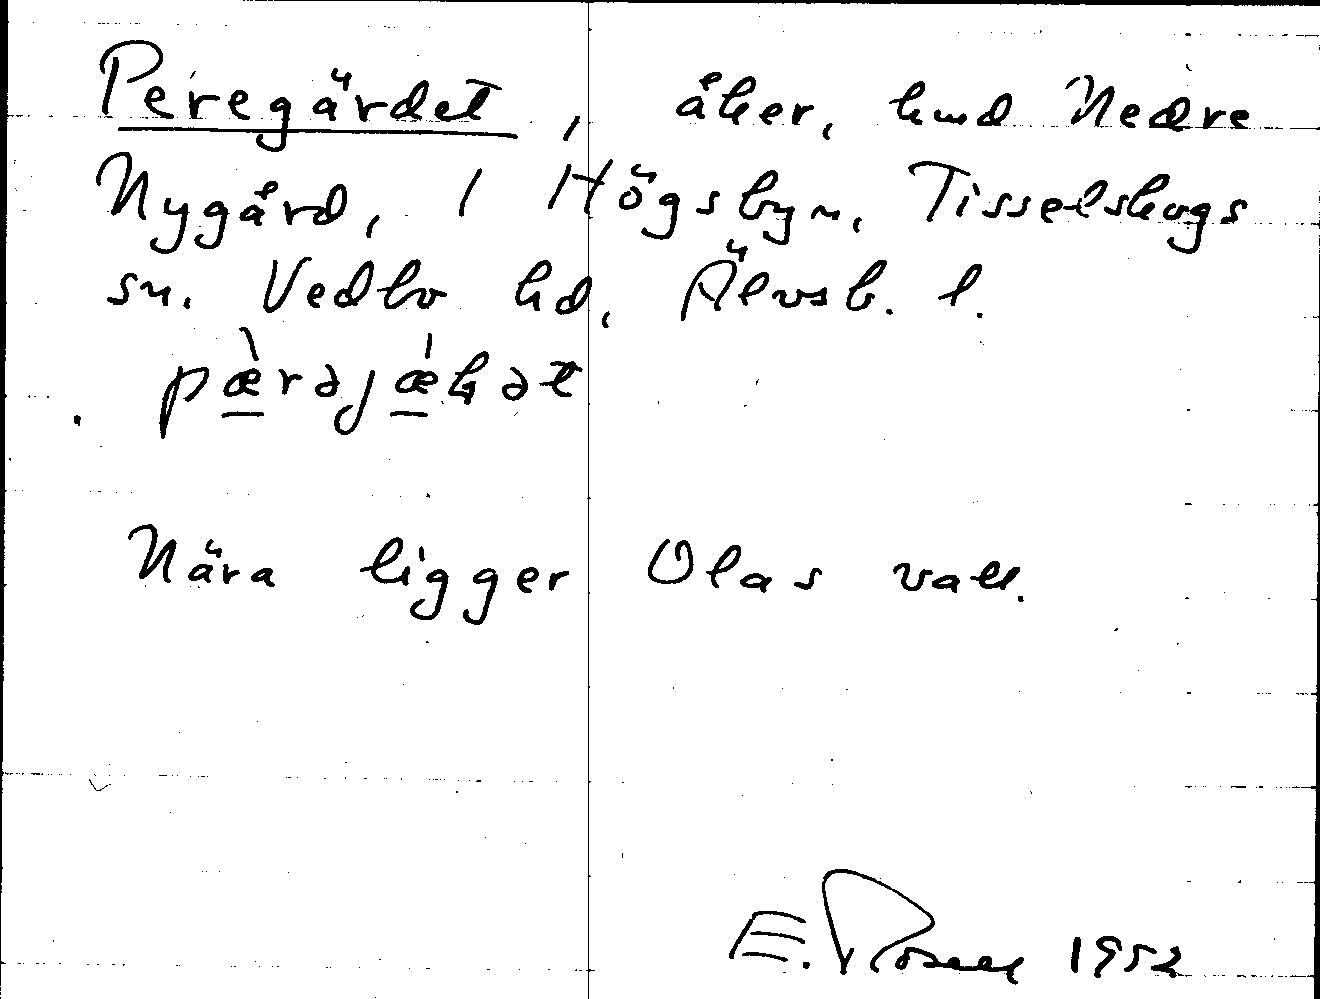 Peregärdet, åker, hmd Nedre
Nygård, 1 Högsbyn, Tisselskogs
sn. Vedbo hd, Älvsb. l.
Nära ligger Olas vall.
E. 1952